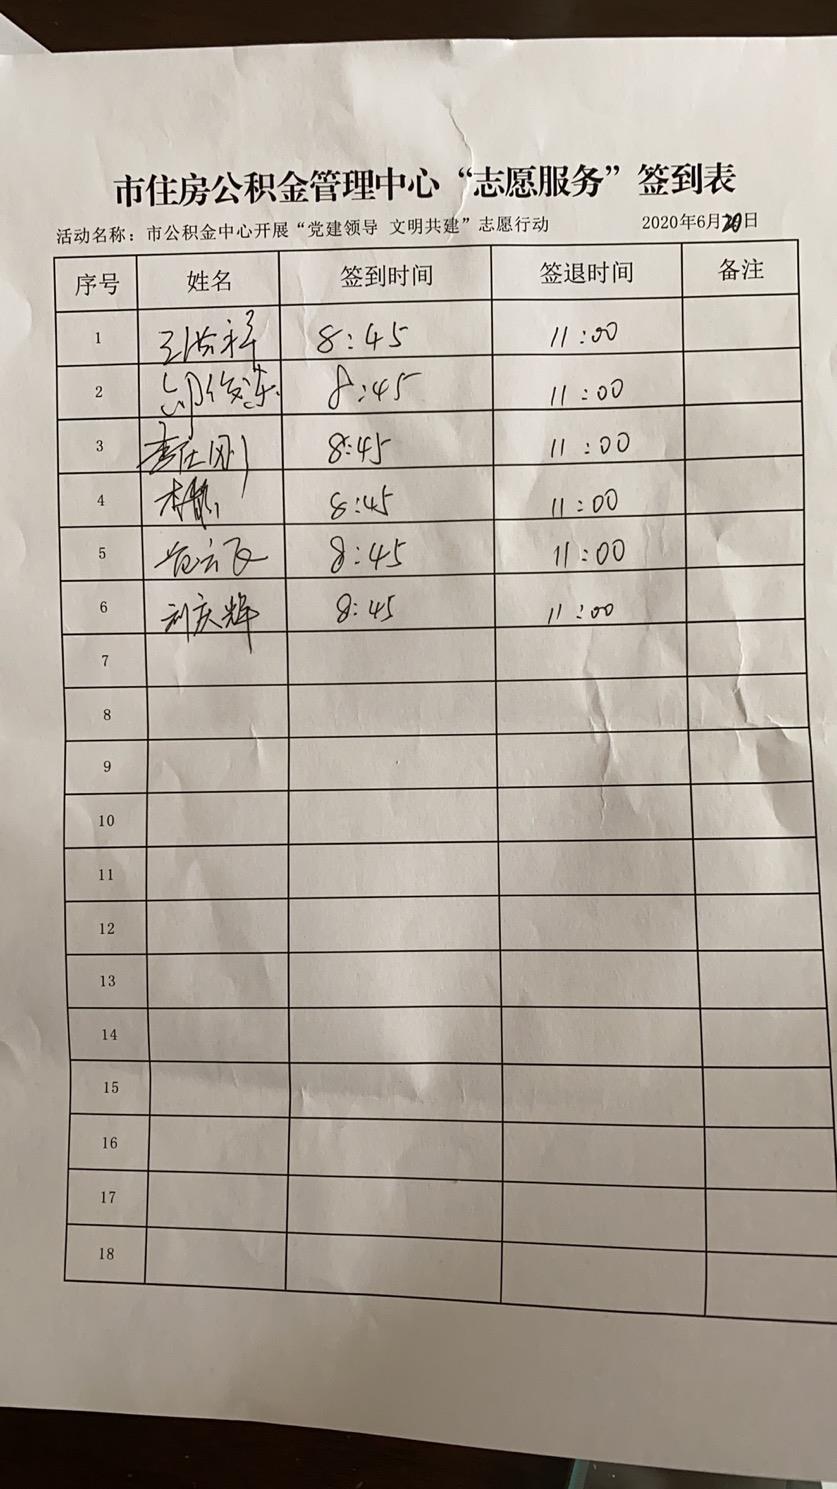 市住房公积金管理中心“志愿服务”签到表
活动名称：市公积金中心开展“党建领导 文明共建”志愿行动 2020年6月20日
序号 姓名 签到时间 签退时间 备注
1 8:45 11:00
2 8:45 11:00
3 8:45 11:00
4 8:45 11:00
5 范云飞 8:45 11:00
6 刘庆辉 8:45 11:00
7
8
9
10
11
12
13
14
15
16
17
18